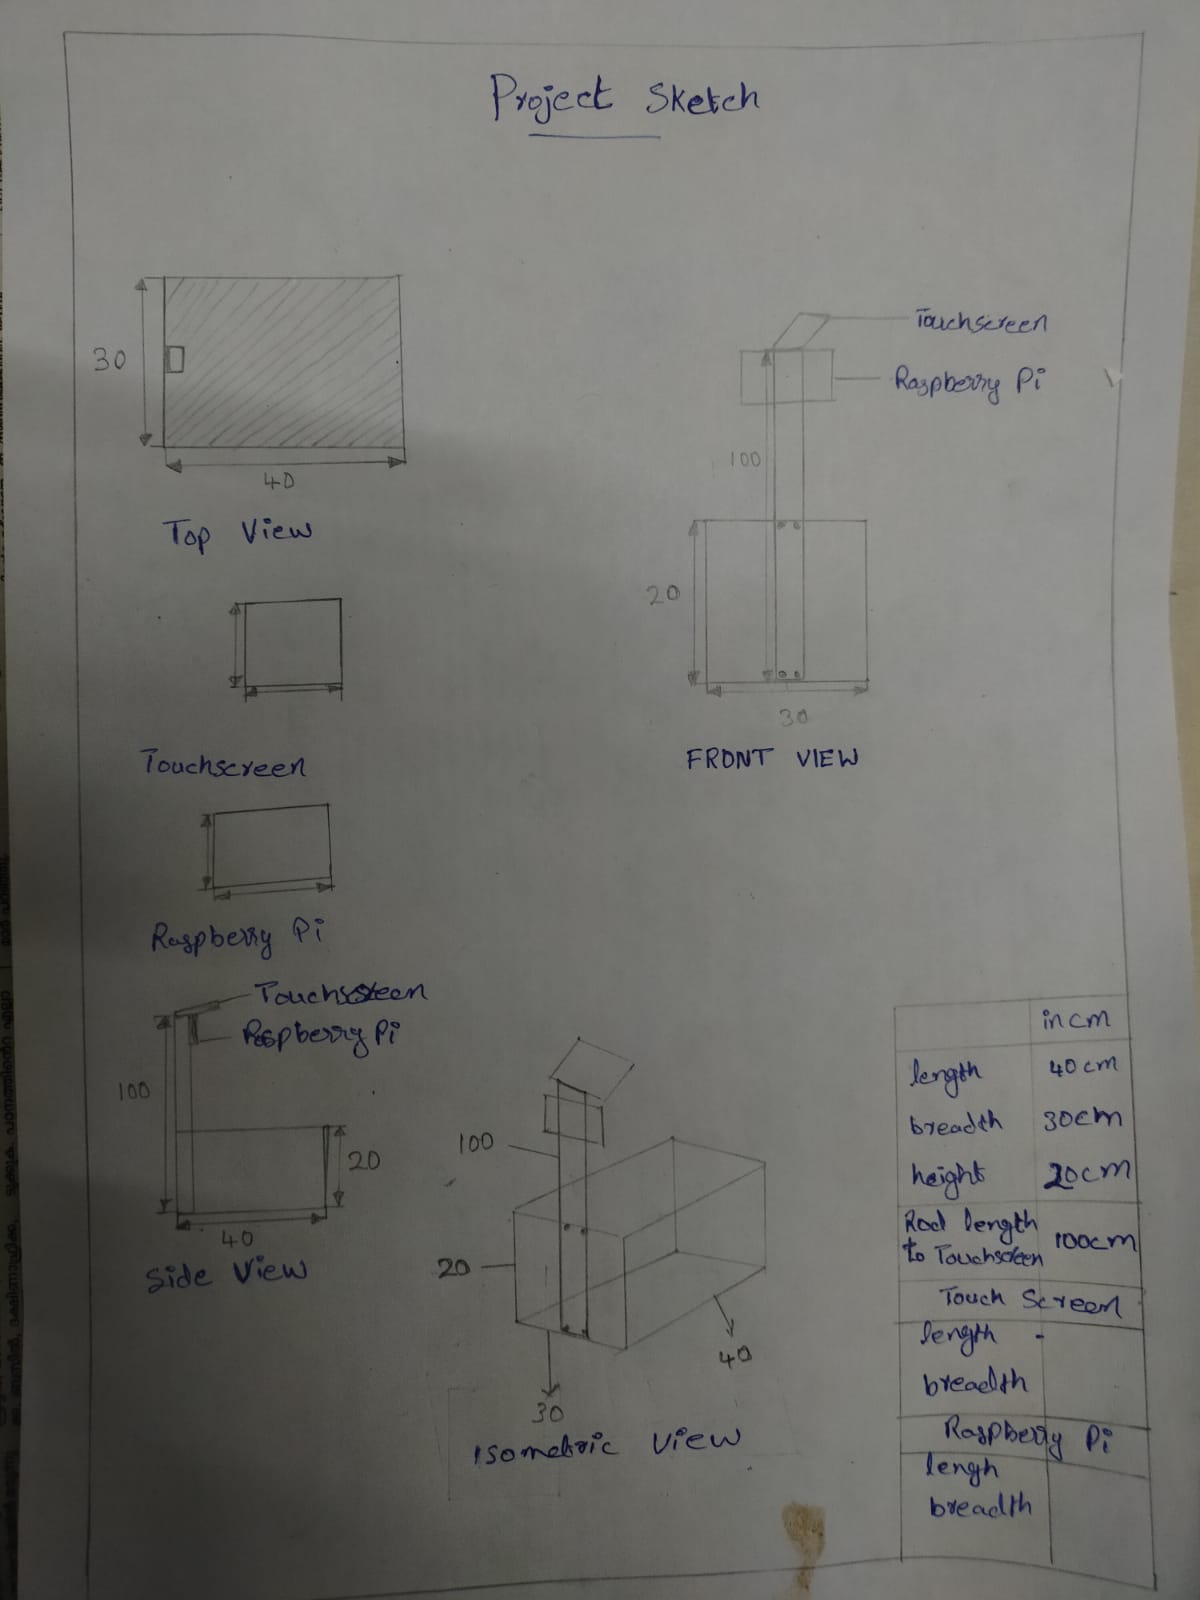 Project Sketch
30
40
Top View
Touchscreen
Raspberry Pi
100
20
30
FRONT VIEW
Touchscreen
Raspberry Pi
Touchscreen
Raspberry Pi
100
20
40
Side View
100
20
40
30
Isometric View
in cm
length 40 cm
breadth 30cm
height 20cm
Rod length
to Touchscreen 100cm
Touch Screen
length -
breadth
Raspberry Pi
lengh
breadth